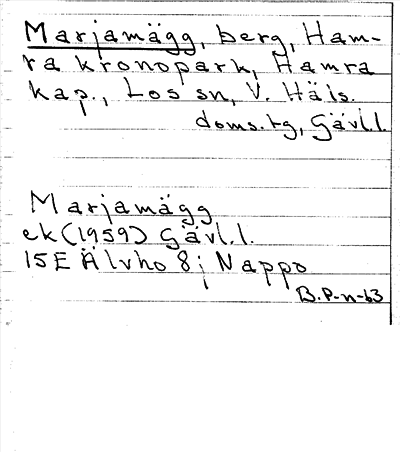 Marjamägg, berg, Ham-
ra kronopark, Hamra
kap., Los sn, V. Häls.
doms.tg, Gävl.l.
Marjamägg
ek (1959) Gävl.l.
15E Älvho 8 j Nappo
B.P-n-63